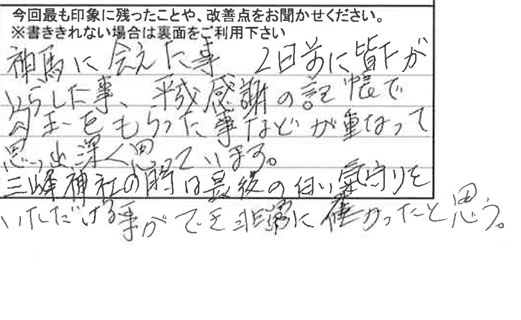 今回最も印象に残ったことや、改善点をお聞かせください。
※書ききれない場合は裏面をご利用下さい
神馬に会えた事 2日前に皆でが
いらした事、平成感謝の記帳で
勾玉をもらった事などが重なって
思い出深く思っています。
三峰神社の時は最後の白い氣守りを
いただける事ができ非常に確かったと思う。